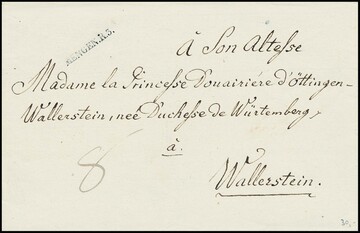 MENGEN.R.3.
à Son Altesse
Madame la Princesse Douairière d'Öttingen-
Wallerstein, née Duchesse de Würtemberg,
à
Wallerstein.
8
20,-